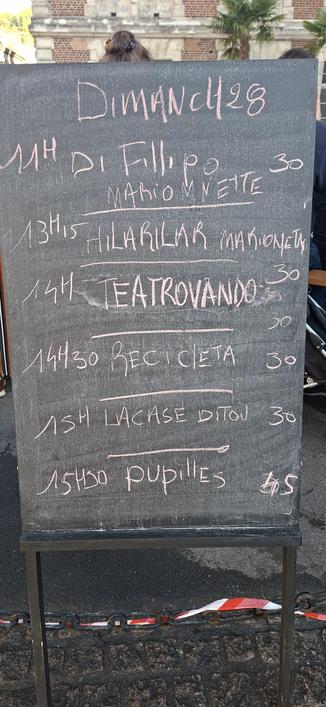 DIMANCH 28
11H DI FILLIPO 30
MARIONNETTE
13H15 HILARILAR MARIONETA
30
14H TEATROVANDO
30
14H30 RECICLETA 30
15H LACASE DITOU 30
15H30 PUPILLES 45